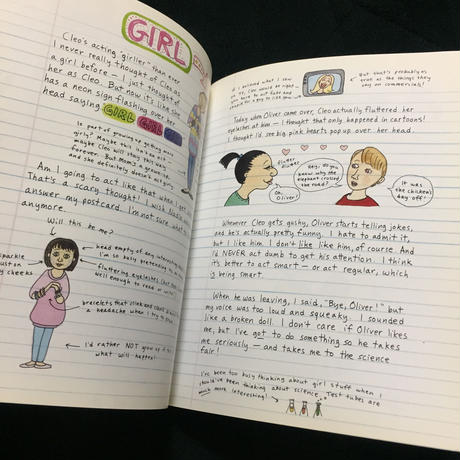 GIRL
Cleo's acting "girlier" than ever.
I never really thought of Cleo as
a girl before — I just thought of
her as Cleo. But now it's like she
has a neon sign flashing over her
head saying GIRL GIRL
Is part of growing up getting more
girly? Maybe this
maybe Cleo will stay this way
forever. But Mom's a grown-up
and she definitely doesn't act girly
Am I going to act like that when I get
That's a scary thought! I wish
answer my postcard. I'm not sure
anymore.
Will this be me?
sparkle
cheeks
head empty of any interesting
I'm so busy pretending to
fluttering eyelashes (but can
well enough to read or write)
bracelets that clink and
a headache when I try to
I'd rather NOT grow up if
what will happen!
If I believed what I saw
on TV, Cleo would be right
But that's probably
even as the things they
say on commercials!
Today when Oliver came over, Cleo actually fluttered her
eyelashes at him — I thought that only happened in cartoons!
I thought I'd see big pink hearts pop up over her head.
flutter
flutter
Oh,
Oliver!
Hey, do you
know why the
elephant crossed
the road?
It was
the chicken's
day off!
Whenever Cleo gets gushy, Oliver starts telling jokes,
and he's actually pretty funny. I hate to admit it,
but I like him. I don't like like him, of course. And
I'd NEVER act dumb to get his attention. I think
it's better to act smart — or act regular, which
is being smart.
When he was leaving, I said, "Bye, Oliver!" but
my voice was too loud and squeaky. I sounded
like a broken doll. I don't care if Oliver likes
me, but I've got to do something so he takes
me seriously — and takes me to the science
fair!
I've been too busy thinking about girl stuff when I
should've been thinking about science. Test tubes are
much more interesting!